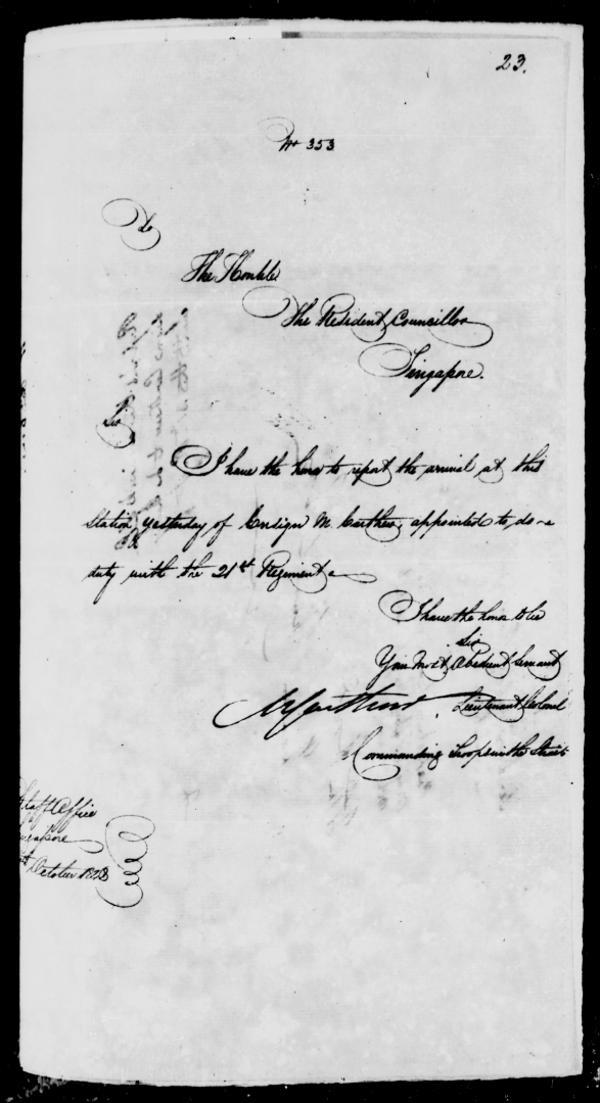 23.
No 353
To
The Honble
The Resident Councillor
Singapore.
Sir
I have the honor to report the arrival at this
Station yesterday of Ensign appointed to do
duty with the 21st Regiment
I have the honor to be
Sir
Your Most Obedient Servant
Lieutenant Colonel
Commanding Troops in the Straits
Staff Office
October